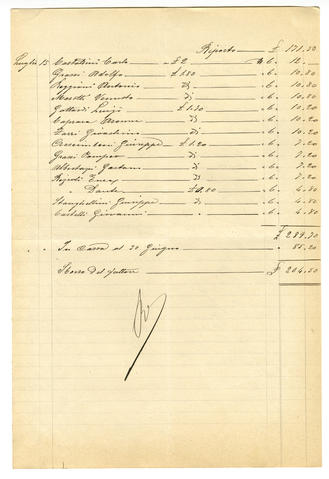 Riporto — £ 171.50
Luglio 15 Castellini Carlo — £ 2 6. 12. —
Grassi Adolfo — £1.80 " 6. — 10.80
Poggioni Antonio — di — " 6. — 10.80
Moretti Venusto — di — " 6. — 10.80
Gattardi Luigi — £ 1.70 — " 6. — 10.20
Caprara — di — " 6. — 10.20
Zarri Gioachino — di — " 6. — 10.20
Giuseppe — £ 1.20 — " 6. — 7.20
Grassi — di — " 6. — 7.20
Albertazzi Gaetano — di — " 6. — 7.20
— di — " 6. — 7.20
" Dante — £ 0.80 — " 6. — 4.80
Stanghellini Giuseppe — di — " 6. — 4.80
Castelli Giovanni — " — " 6. — 4.80
£ 289.70
" " In Cassa al 30 Giugno — " 85.20
Sborso Del Fattore — £ 204.50